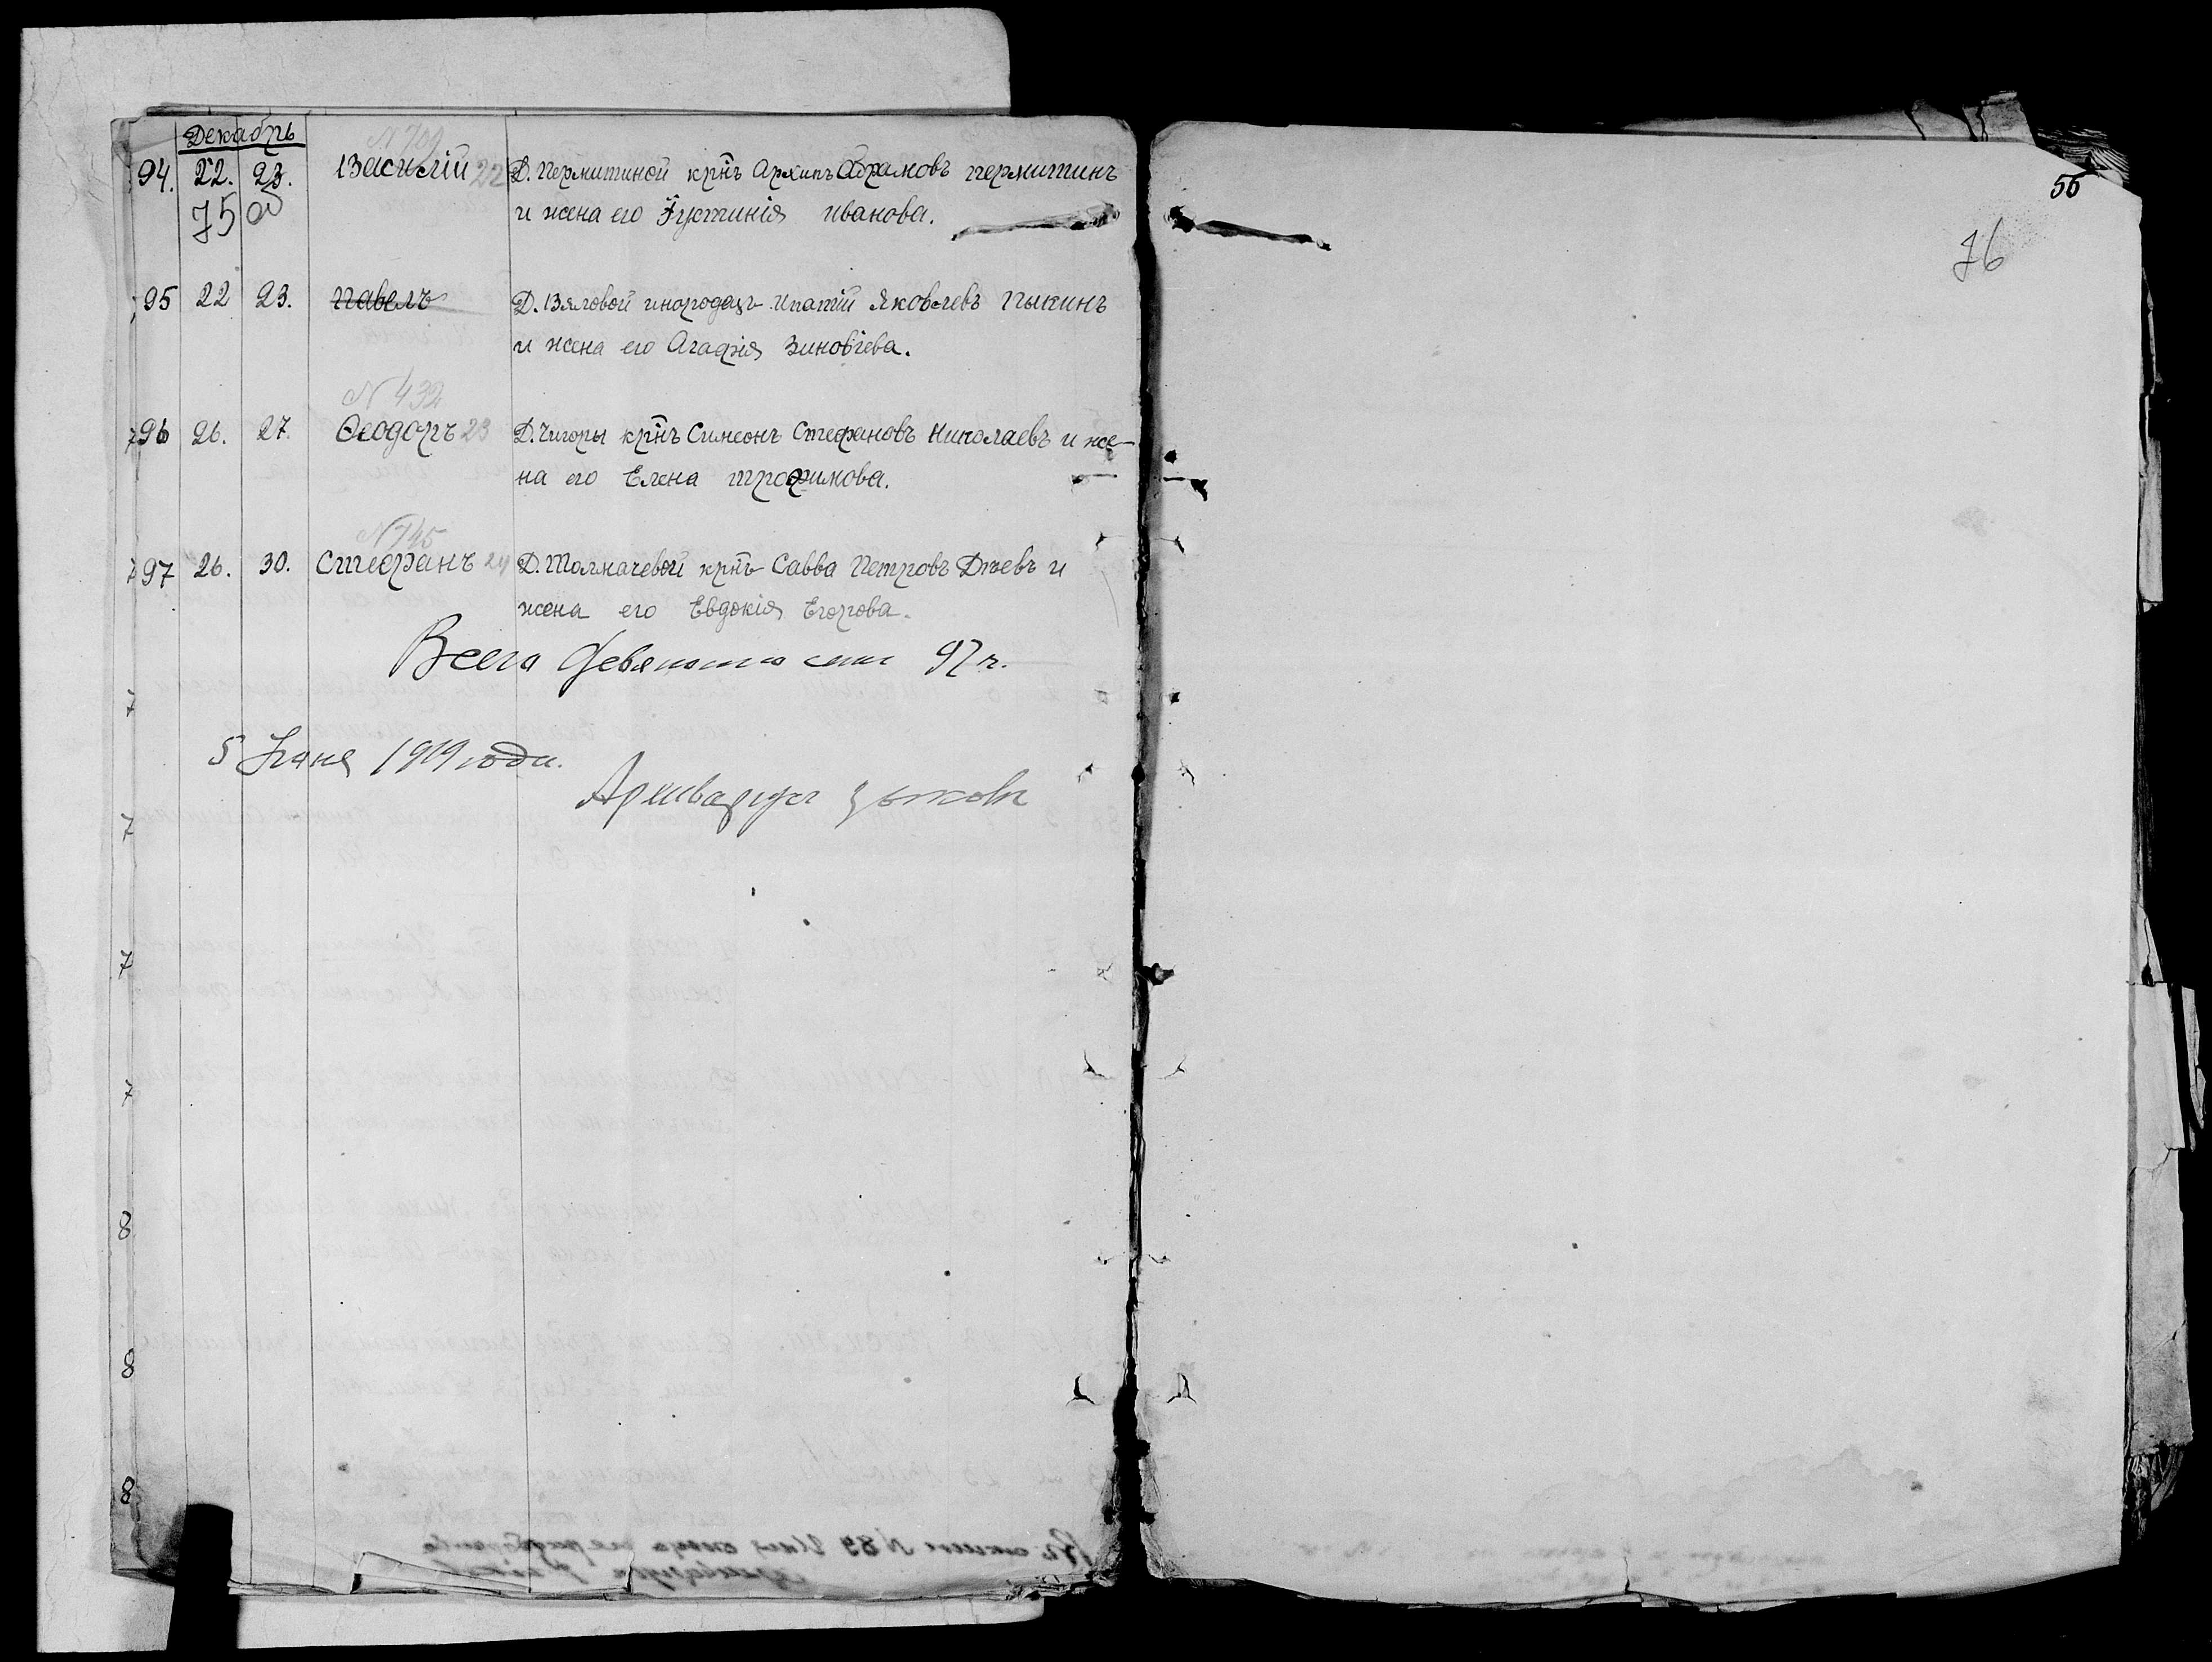 Декабрь
№ 709
94. 22. 23. Василій 22 Д. Пермитиной крнъ Архипъ Абрамовъ Пермитинъ
75 об и жена его Іустинія Иванова.
95 22 23. Павелъ Д. Вяловой инородецъ Ипатій Яковлевъ Пыкинъ
и жена его Агафія Зиновіева.
№ 432
96 26. 27. Ѳеодоръ 23 Д. Чигоры крнъ Симеонъ Стефановъ Николаевъ и же-
на его Елена Трофимова.
№ 745
97 26. 30. Стефанъ 24 Д. Толмачевой крнъ Савва Петровъ Дьевъ и
жена его Евдокія Егорова.
Всего девяносто семь 97 ч.
5 Іюня 1919 года.
Архиваріусъ
7
7
7
7
8
8
8
56
76